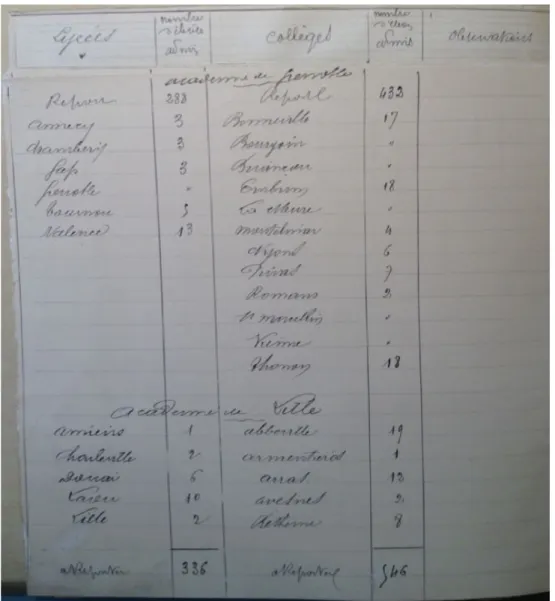 Lycées nombre d'élèves admis Collèges nombre d'élèves admis Observations
Académie de Grenoble
Report 288 Report 432
Annecy 3 Bonneville 17
Chambéry 3 Bourgoin "
Gap 3 Briançon "
Grenoble " Embrun 18
Tournon 5 La Mure "
Valence 13 Montélimar 4
Nyons 6
Privas 7
Romans 2
St Marcellin "
Vienne "
Thonon 18
Académie de Lille
Amiens 1 Abbeville 19
Charleville 2 Armentières 1
Douai 6 Arras 12
Laon 10 Avesnes 2
Lille 2 Béthune 8
à Reporter 336 à Reporter 546